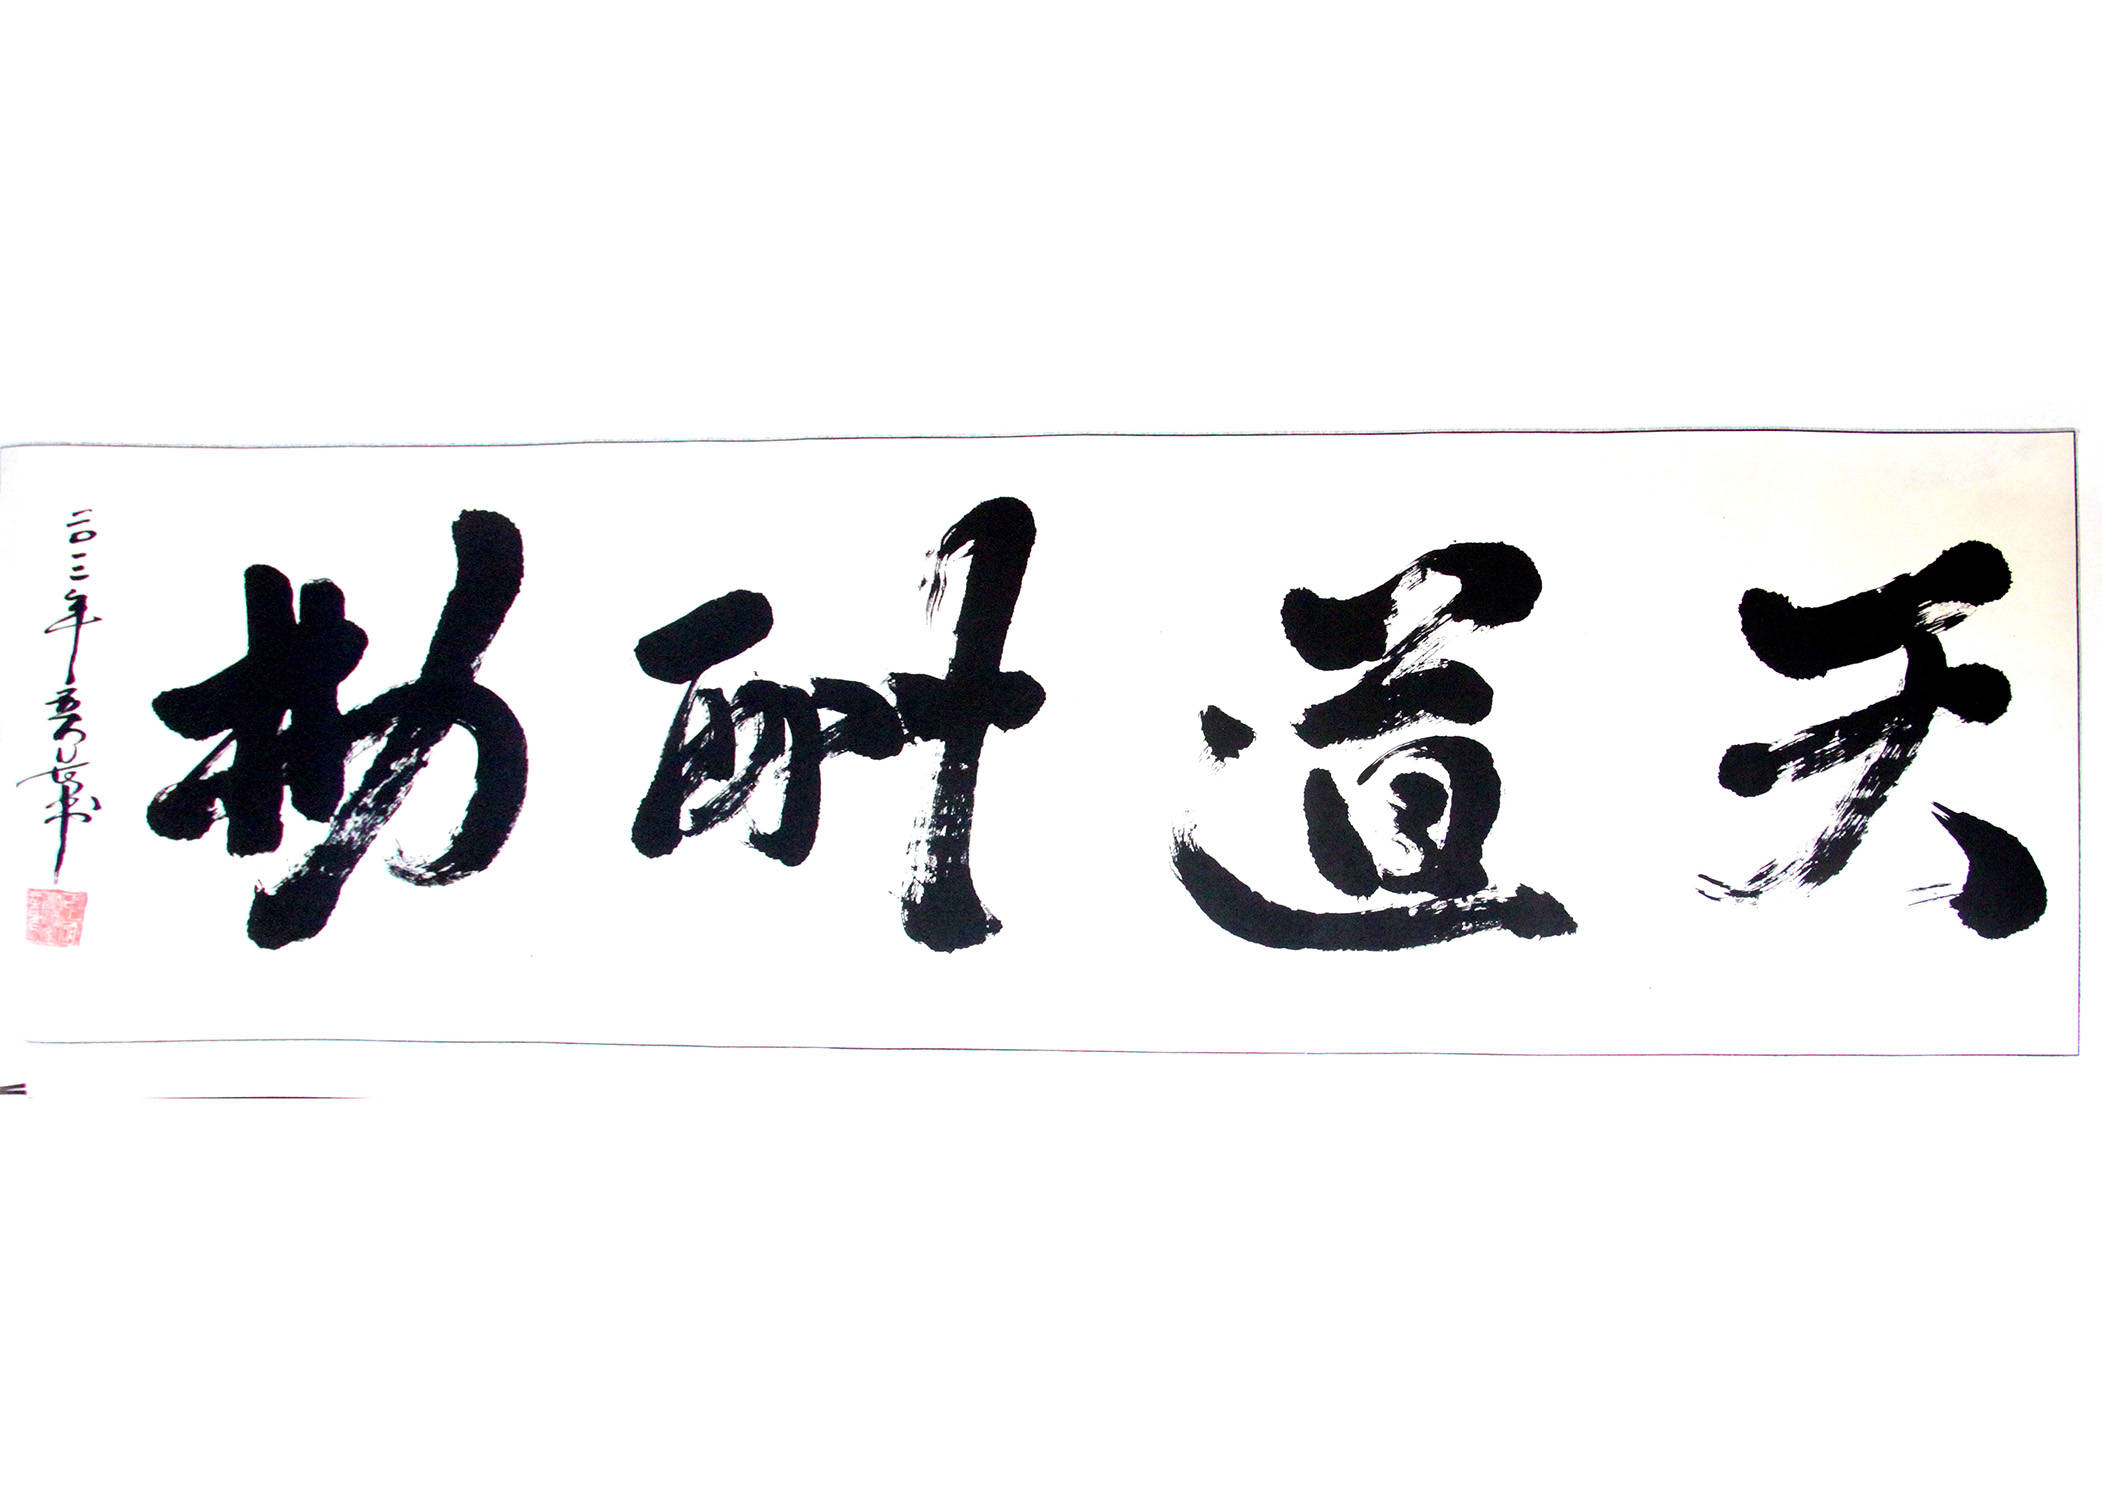 天道酬勤
二〇一二年